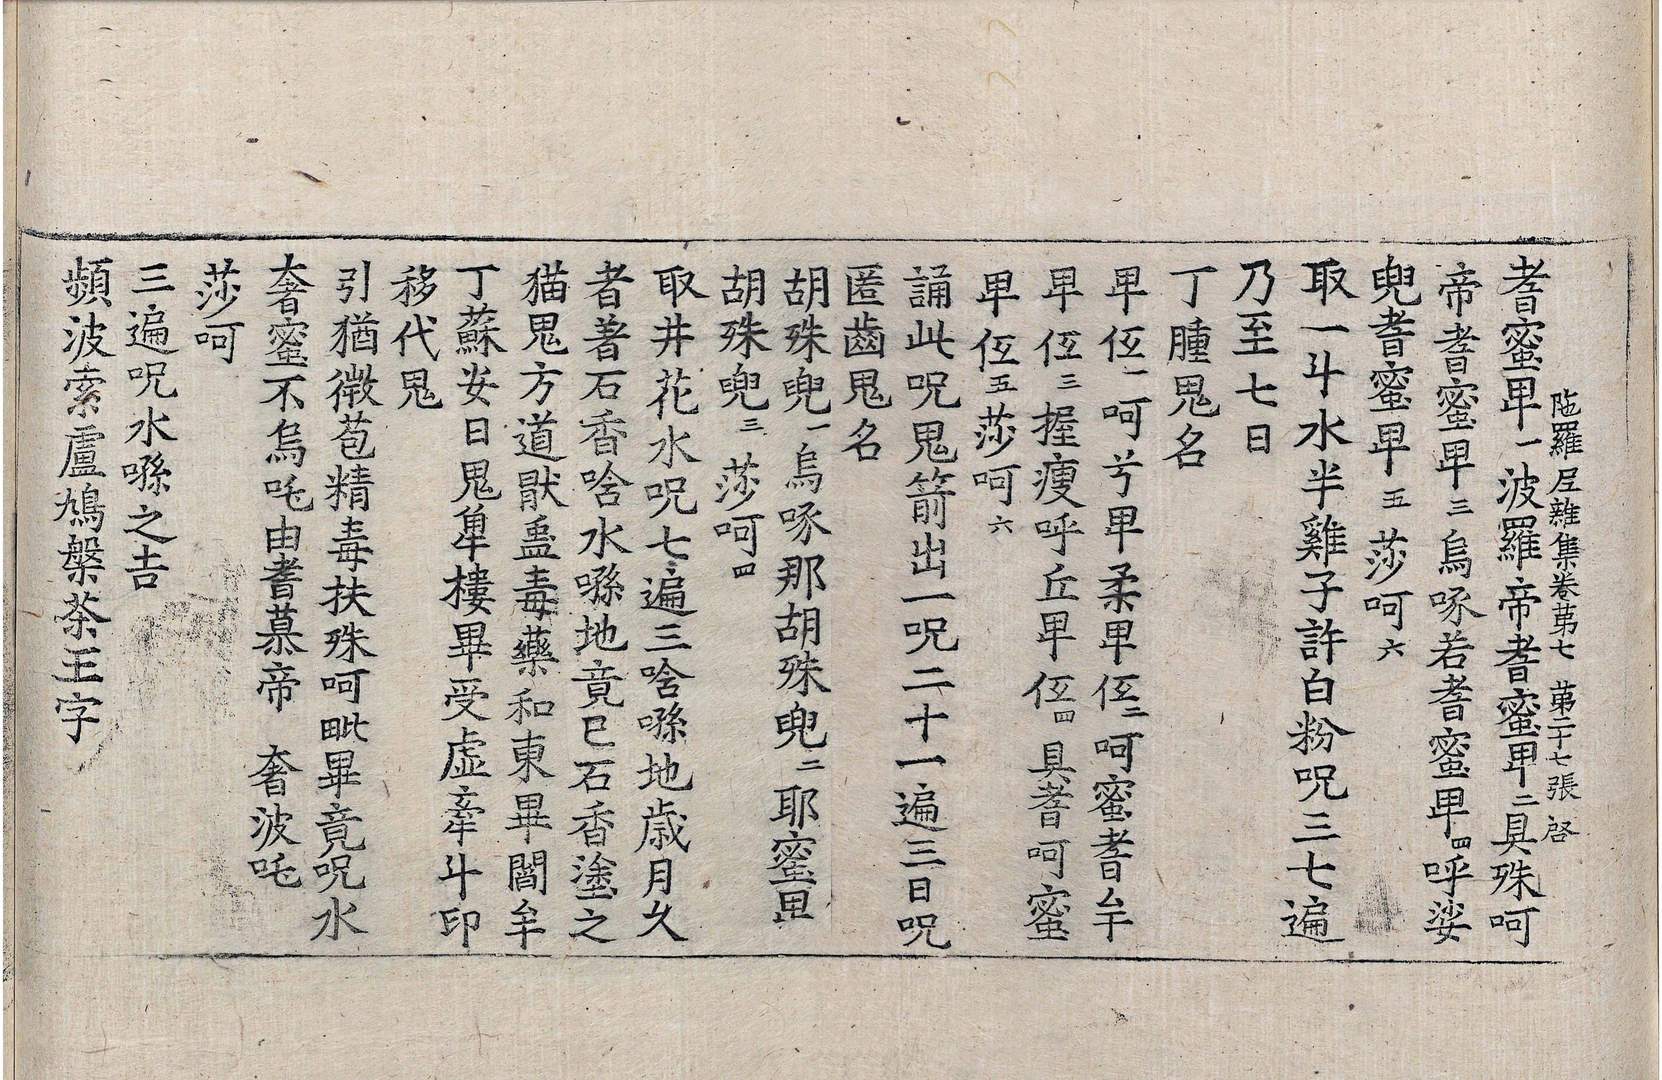 陁羅尼雜集卷苐七 苐二十七張 啓
耆蜜𤰞一波羅帝耆蜜𤰞二具殊呵
帝耆蜜𤰞三烏啄若耆蜜𤰞四呼娑
兜耆蜜𤰞五莎呵六
取一斗水半雞子許白粉呪三七遍
乃至七日
丁腫鬼名
𤰞伍一呵兮𤰞柔𤰞伍二呵蜜耆牟
𤰞伍三握瘦呼丘𤰞伍四具蓍呵蜜
𤰞伍五莎呵六
誦此呪鬼箭出一呪二十一遍三日呪
匿齒鬼名
胡殊兜一烏啄那胡殊兜二耶蜜𤰞
胡殊兜三莎呵四
取井花水呪七遍三唅噝地歲月久
者著石香唅水噝地竟巳石香塗之
猫鬼方道猒蠱毒藥和東畢閻牟
丁蘇安日鬼隼樓畢受虛牽斗印
移代鬼
引猶微苞精毒扶殊呵毗畢竟呪水
奢蜜不烏吒由耆慕帝 奢波吒
莎呵
三遍呪水噝之吉
頻波索盧鳩槃荼王字